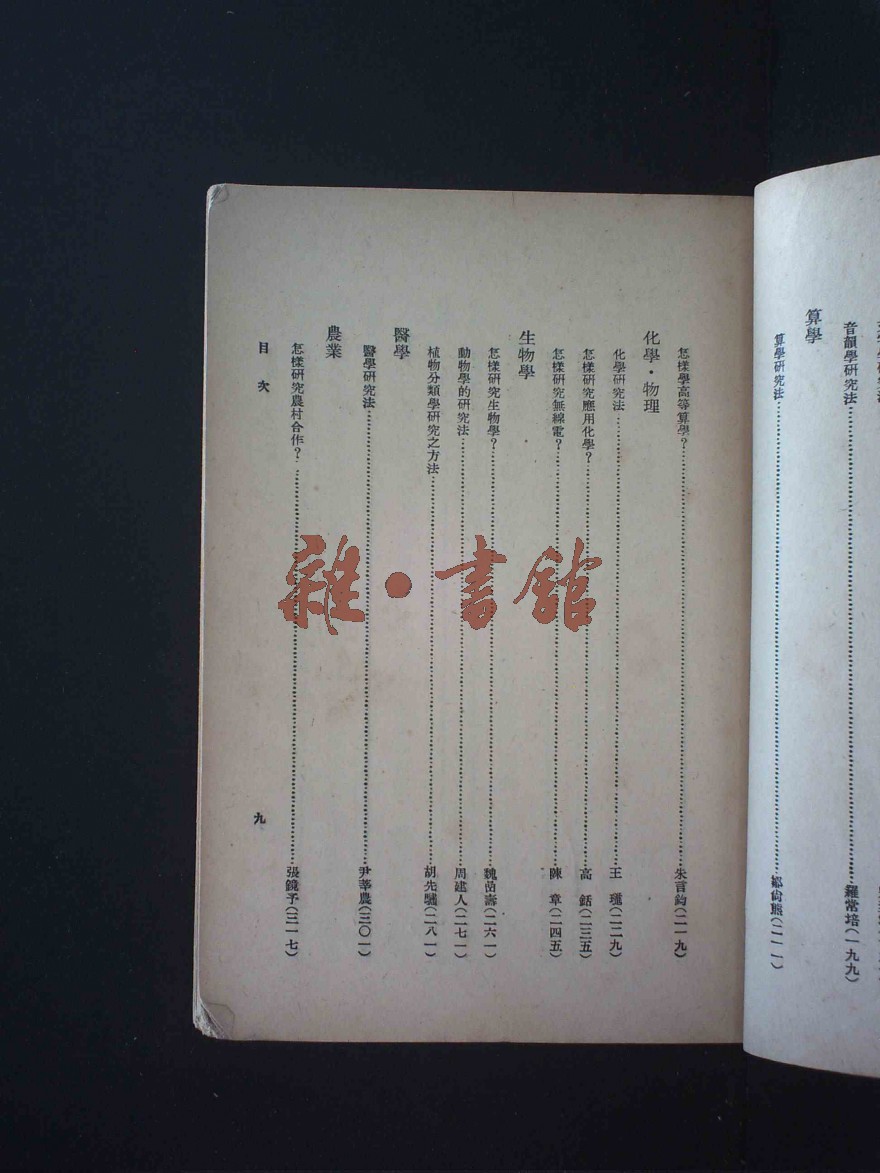 音韻學研究法 羅常培(一九九)
算學
算學研究法 鄒尙熊(二一一)
怎樣學高等算學? 朱言鈞(二一九)
化學・物理
化學研究法 王璡(二二九)
怎樣研究應用化學? 高銛(二三五)
怎樣研究無線電? 陳章(二四五)
生物學
怎樣研究生物學? 魏喦壽(二六一)
動物學的研究法 周建人(二七一)
植物分類學研究之方法 胡先驌(二八一)
醫學
醫學研究法 尹莘農(三〇一)
農業
怎樣研究農村合作? 張鏡予(三一七)
目次
九
雜・書館